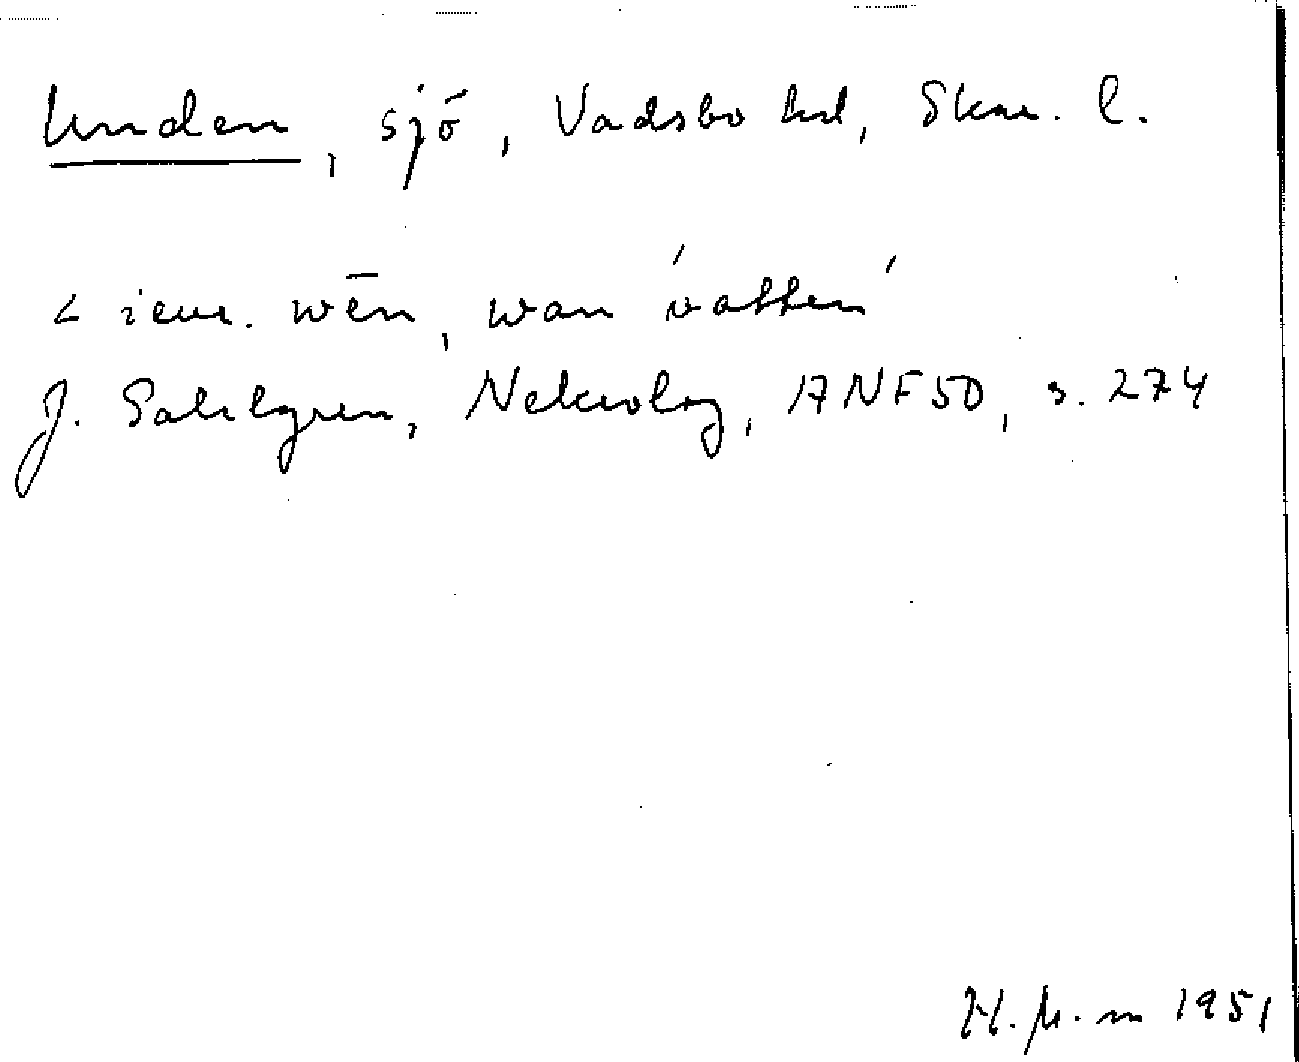 Unden, sjö, Vadsbo hd, Skar. l.
< ieur. wēn, wan 'vatten'
J. Sahlgren, Nekrolog, ANF 50, s. 274
1951